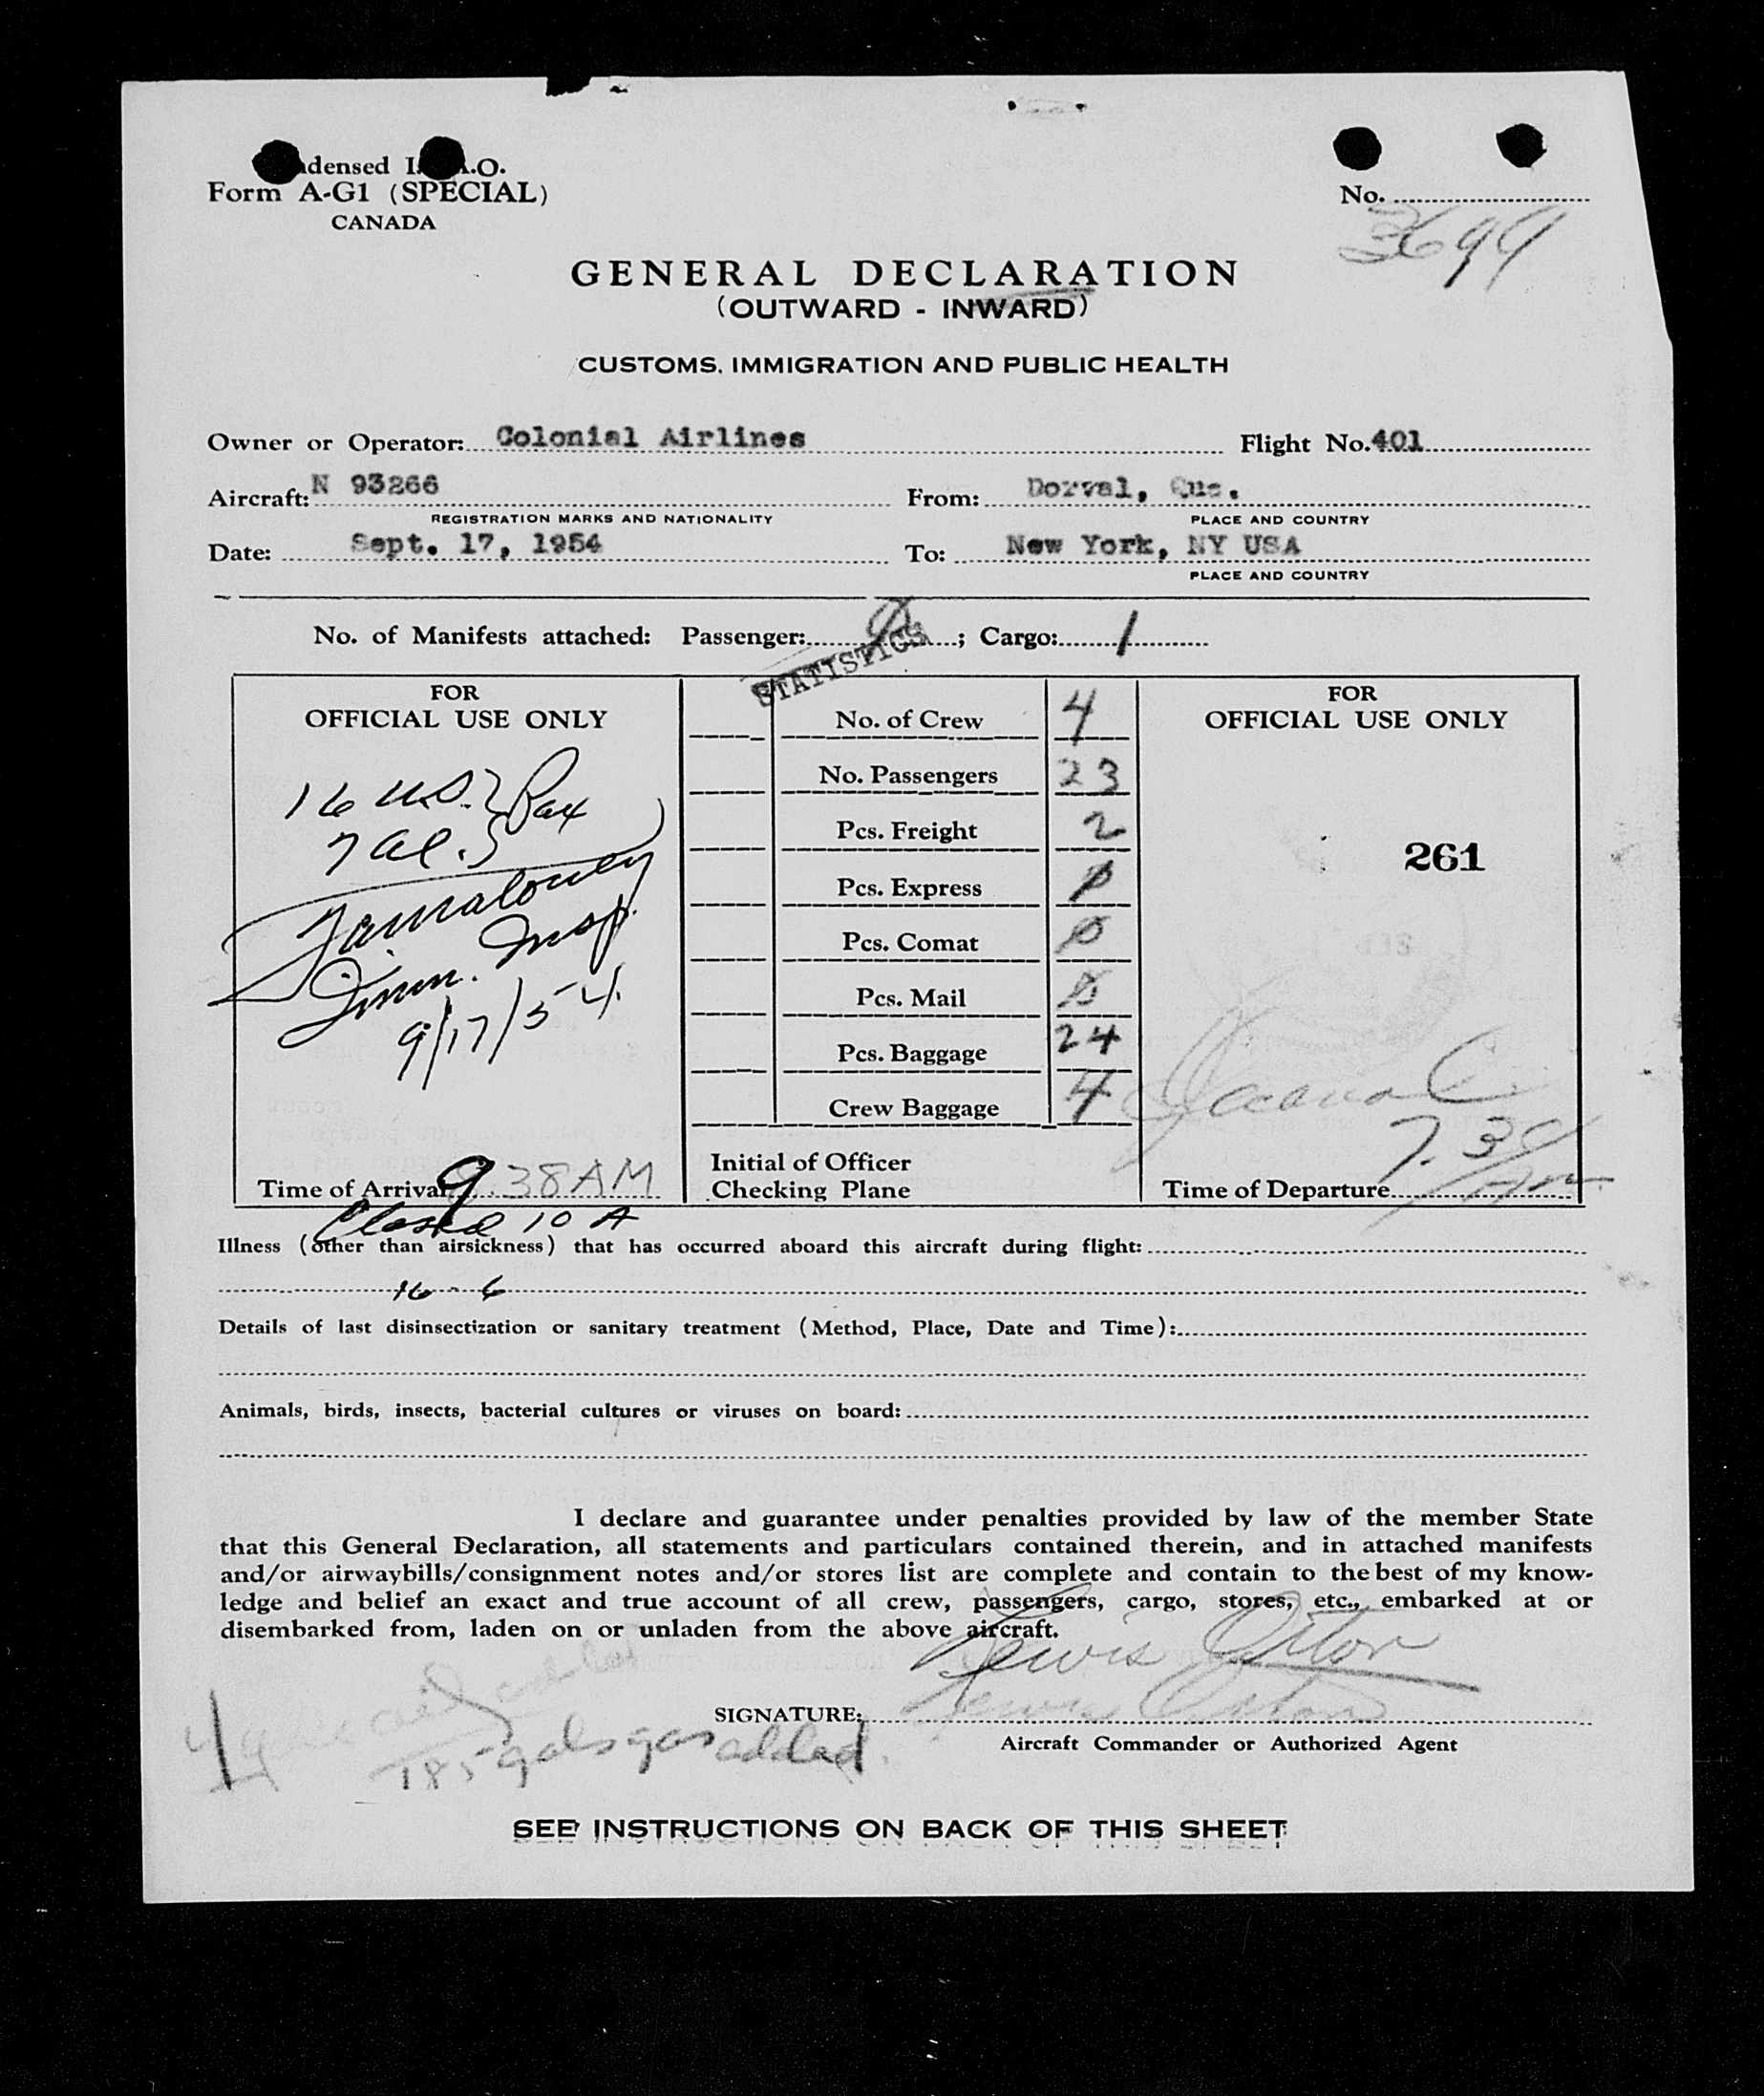 densed I. .O.
Form A-G1 (SPECIAL)
CANADA
No.
GENERAL DECLARATION
(OUTWARD - INWARD)
CUSTOMS, IMMIGRATION AND PUBLIC HEALTH
Owner or Operator: Colonial Airlines Flight No. 401
Aircraft: N 93266 From: Dorval, Que.
REGISTRATION MARKS AND NATIONALITY PLACE AND COUNTRY
Date: Sept. 17, 1954 To: New York, NY USA
PLACE AND COUNTRY
No. of Manifests attached: Passenger: ; Cargo: 1
STATISTICS
FOR
OFFICIAL USE ONLY
16 U.S. } Pax
7 al.
Imm. Insp.
9/17/54
Time of Arrival 9 38 AM
Closed 10 A
No. of Crew 4
No. Passengers 23
Pcs. Freight 2
Pcs. Express 0
Pcs. Comat 0
Pcs. Mail 0
Pcs. Baggage 24
Crew Baggage 4
Initial of Officer
Checking Plane
FOR
OFFICIAL USE ONLY
261
Time of Departure
Illness (other than airsickness) that has occurred aboard this aircraft during flight:
16 - 6
Details of last disinsectization or sanitary treatment (Method, Place, Date and Time):
Animals, birds, insects, bacterial cultures or viruses on board:
I declare and guarantee under penalties provided by law of the member State
that this General Declaration, all statements and particulars contained therein, and in attached manifests
and/or airwaybills/consignment notes and/or stores list are complete and contain to the best of my know-
ledge and belief an exact and true account of all crew, passengers, cargo, stores, etc., embarked at or
disembarked from, laden on or unladen from the above aircraft.
Lewis
SIGNATURE:
Aircraft Commander or Authorized Agent
185 gals gas added
SEE INSTRUCTIONS ON BACK OF THIS SHEET